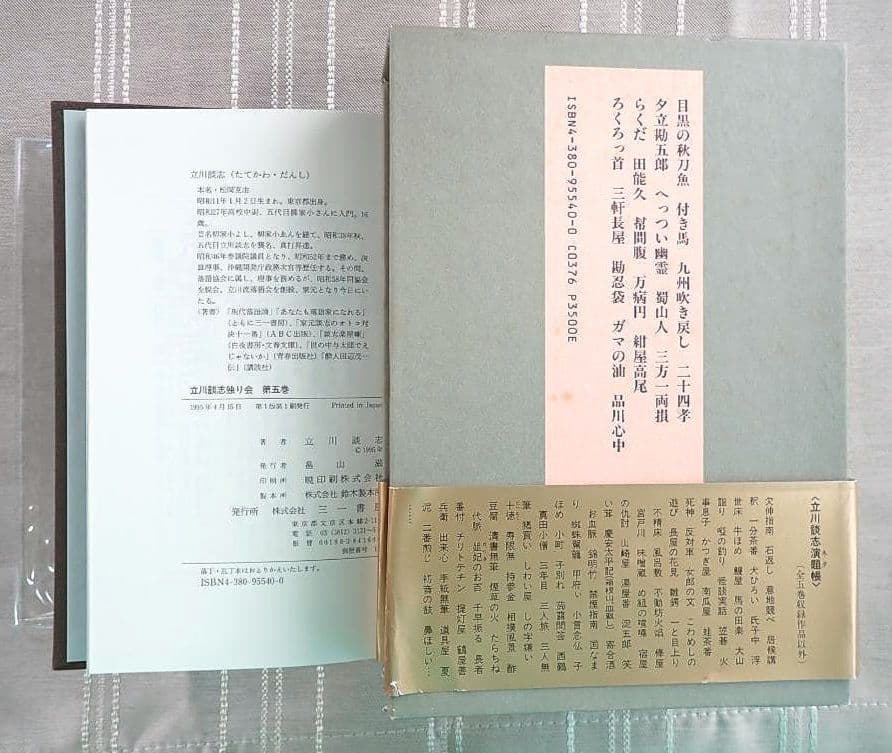 立川談志（たてかわ・だんし）
本名・松岡克由
昭和11年1月2日生まれ。東京都出身。
昭和27年高校中退、五代目柳家小さんに入門。16
歳。
芸名柳家小よし、柳家小ゑんを経て、昭和38年秋、
五代目立川談志を襲名、真打昇進。
昭和46年参議院議員となり、昭和52年まで務め、決
算理事、沖縄開発庁政務次官等歴任する。その間、
落語協会に属し、理事を務めるが、昭和58年同協会
を脱会、立川流落語会を創設、家元となり今日にい
たる。
〈著書〉「現代落語論」「あなたも落語家になれる」
（ともに三一書房）、「家元談志のオトコ対
決十一番」（ABC出版）、「談志楽屋噺」
（白夜書房・文春文庫）、「世の中与太郎でえ
じゃないか」（青春出版社）「酔人田辺茂一
伝」（講談社）
立川談志独り会　第五巻
1995年4月15日　第1版第1刷発行　Printed in Japan
著者　立川談志
©1995年
発行者　畠山滋
印刷所　暁印刷株式会社
製本所　株式会社 鈴木製本所
発行所　株式会社 三一書房
東京都文京区本郷2-11-
電話 03 (3812) 3131～
振替 00190-3-8416
郵便番号 1
落丁・乱丁本はおとりかえいたします。
ISBN4-380-95540-0
目黒の秋刀魚　付き馬　九州吹き戻し　二十四孝
夕立勘五郎　へっつい幽霊　蜀山人　三方一両損
らくだ　田能久　幇間腹　万病円　紺屋高尾
ろくろっ首　三軒長屋　勘忍袋　ガマの油　品川心中
ISBN4-380-95540-0 C0376 P3500E
〈立川談志演題帳〉
ネタ
（全五巻収録作品以外）
欠伸指南　石返し　意地競べ　居候講
釈　一分茶番　犬ひろい　氏子中　浮
世床　牛ほめ　鰻屋　馬の田楽　大山
詣り　啞の釣り　怪談実話　笠碁　火
事息子　かつぎ屋　南瓜屋　蛙茶番
死神　反対車　女郎の文　こわめしの
遊び　長屋の花見　雛鍔　一と目上り
不精床　風呂敷　不動坊火焔　棒屋
宮戸川　味噌蔵　め組の喧嘩　宿屋
の仇討　山崎屋　湯屋番　淀五郎　笑
い茸　慶安太平記　寄合酒
お血脈　錦明竹　禁煙指南　国なま
り　蜘蛛駕籠　甲府ぃ　小言念仏　子
ほめ　小町　子別れ　蒟蒻問答　西鶴
真田小僧　三年目　三人旅　三人無
筆　猪買い　しわい屋　しの字嫌い
十徳　寿限無　持参金　相撲風景　酢
豆腐　清書無筆　煙草の火　たらちね
代脈　妲妃のお百　千早振る　長者
番付　チリトテチン　提灯屋　鶴屋善
兵衛　出来心　手紙無筆　道具屋　夏
泥　二番煎じ　初音の鼓　鼻ほしい…
……